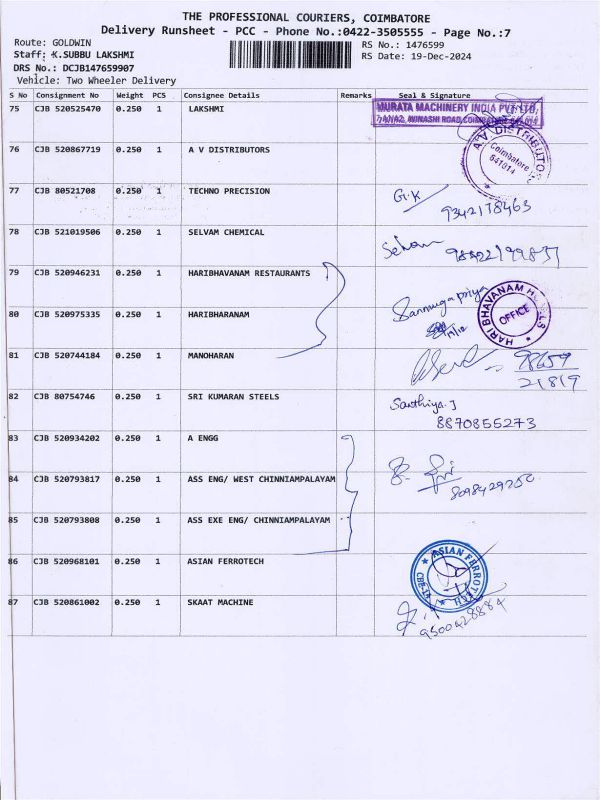 THE PROFESSIONAL COURIERS, COIMBATORE
Delivery Runsheet - PCC - Phone No.:0422-3505555 - Page No.:7
Route: GOLDWIN
RS No.: 1476599
Staff: K.SUBBU LAKSHMI
RS Date: 19-Dec-2024
DRS No.: DCJB147659907
Vehicle: Two Wheeler Delivery
S No Consignment No Weight PCS Consignee Details Remarks Seal & Signature
75 CJB 520525470 0.250 1 LAKSHMI
MURATA MACHINERY INDIA PVT LTD,
AVINASHI ROAD, COIMBATORE
76 CJB 520867719 0.250 1 A V DISTRIBUTORS
A.V. DISTRIBUTORS
Coimbatore
641014
77 CJB 80521708 0.250 1 TECHNO PRECISION
G.K
9342178463
78 CJB 521019506 0.250 1 SELVAM CHEMICAL
79 CJB 520946231 0.250 1 HARIBHAVANAM RESTAURANTS
HARIBHAVANAM HOTELS
OFFICE
80 CJB 520975335 0.250 1 HARIBHARANAM
81 CJB 520744184 0.250 1 MANOHARAN
98659
21819
82 CJB 80754746 0.250 1 SRI KUMARAN STEELS
Santhiya.J
8870855273
83 CJB 520934202 0.250 1 A ENGG
84 CJB 520793817 0.250 1 ASS ENG/ WEST CHINNIAMPALAYAM
85 CJB 520793808 0.250 1 ASS EXE ENG/ CHINNIAMPALAYAM
86 CJB 520968101 0.250 1 ASIAN FERROTECH
ASIAN FERROTECH
87 CJB 520861002 0.250 1 SKAAT MACHINE
9500428884